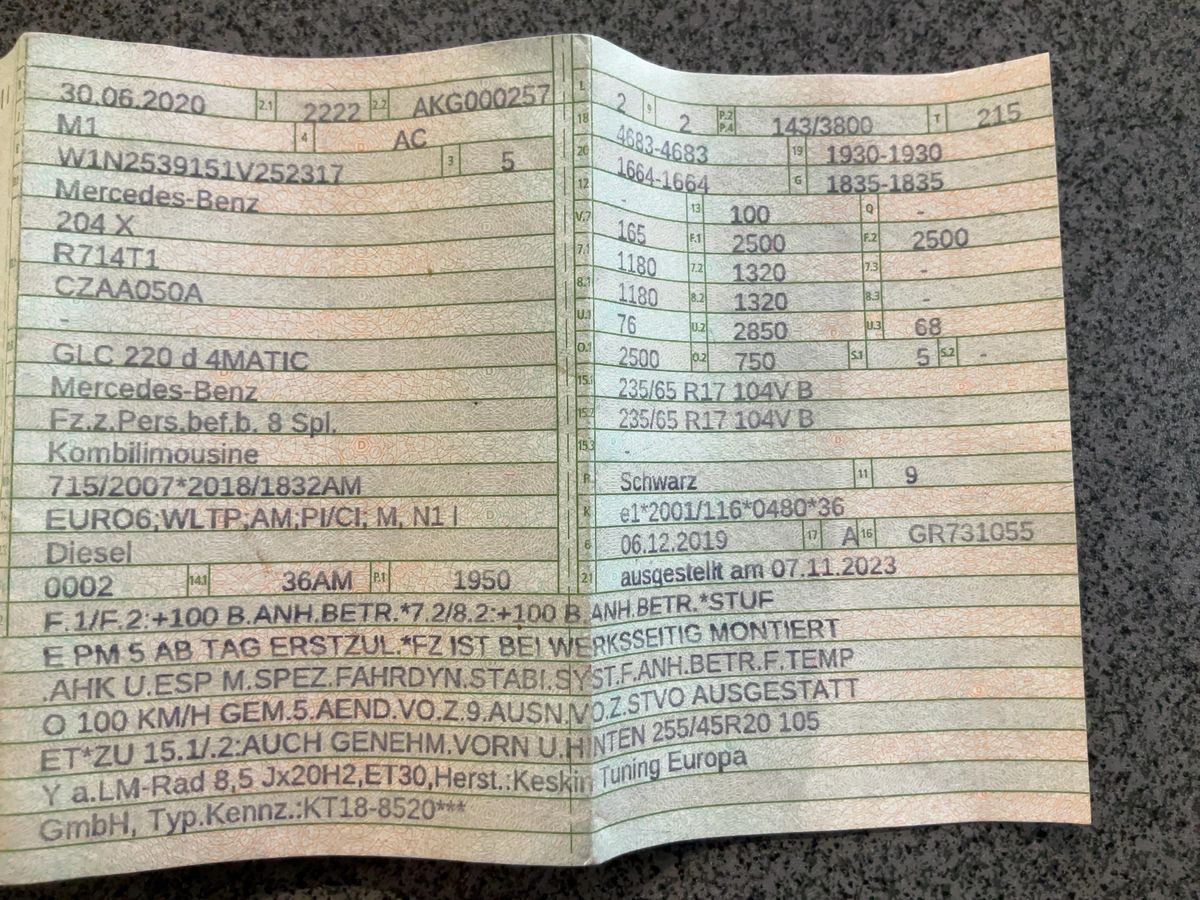 30.06.2020 2.1 2222 2.2 AKG000257
M1 4 AC
W1N2539151V252317 3 5
Mercedes-Benz
204 X
R714T1
CZAA050A
-
GLC 220 d 4MATIC
Mercedes-Benz
Fz.z.Pers.bef.b. 8 Spl.
Kombilimousine
715/2007*2018/1832AM
EURO6;WLTP;AM;PI/CI; M, N1 I
Diesel
0002 14.1 36AM P.1 1950
L 2 9 2 P.2 P.4 143/3800 T 215
18 4683-4683 19 1930-1930
20 1664-1664 G 1835-1835
12 - 13 100 Q -
V.7 165 F.1 2500 F.2 2500
7.1 1180 7.2 1320 7.3 -
8.1 1180 8.2 1320 8.3 -
U.1 76 U.2 2850 U.3 68
O.1 2500 O.2 750 S.1 5 S.2 -
15.1 235/65 R17 104V B
15.2 235/65 R17 104V B
15.3 -
R Schwarz 11 9
K e1*2001/116*0480*36
6 06.12.2019 17 A 16 GR731055
21 ausgestellt am 07.11.2023
F.1/F.2:+100 B.ANH.BETR.*7.2/8.2:+100 B.ANH.BETR.*STUF
E PM 5 AB TAG ERSTZUL.*FZ IST BEI WERKSSEITIG MONTIERT
.AHK U.ESP M.SPEZ.FAHRDYN.STABI.SYST.F.ANH.BETR.F.TEMP
O 100 KM/H GEM.5.AEND.VO.Z.9.AUSN.VO.Z.STVO AUSGESTATT
ET*ZU 15.1/.2:AUCH GENEHM.VORN U.HINTEN 255/45R20 105
Y a.LM-Rad 8,5 Jx20H2,ET30,Herst.:Keskin Tuning Europa
GmbH, Typ.Kennz.:KT18-8520***